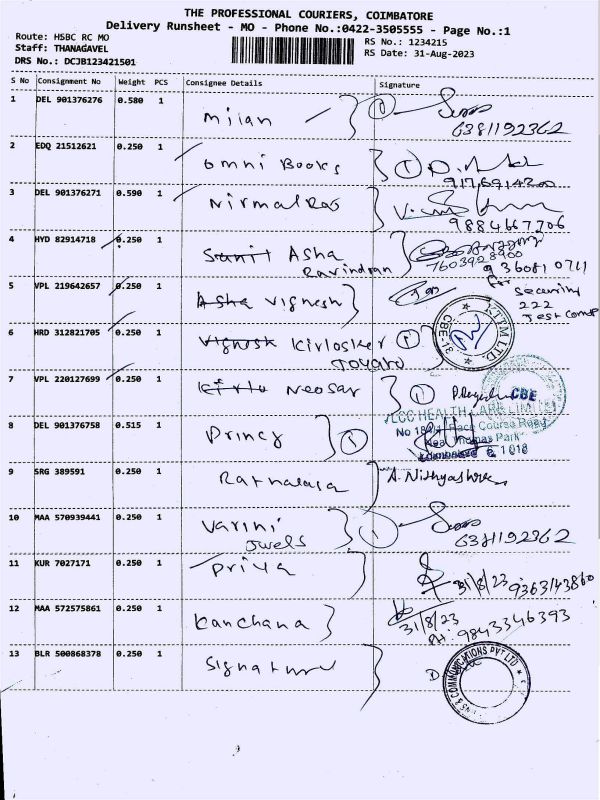 THE PROFESSIONAL COURIERS, COIMBATORE
Delivery Runsheet - MO - Phone No.:0422-3505555 - Page No.:1
Route: HSBC RC MO
Staff: THANAGAVEL
DRS No.: DCJB123421501
RS No.: 1234215
RS Date: 31-Aug-2023
S No Consignment No Weight PCS Consignee Details Signature
1 DEL 901376276 0.580 1 Milan 1
6381192362
2 EDQ 21512621 0.250 1 Omni Books 1
3 DEL 901376271 0.590 1 Nirmal Rao
9884667706
4 HYD 82914718 0.250 1 Sunil Asha
Ravindran 7603928900
936081 0711
5 VPL 219642657 0.250 1 Asha Vignesh
for
Security
222
6 HRD 312821705 0.250 1 Vignesh Kirlosker 1
Toyato
CBE-31 TTM LTD.
7 VPL 220127699 0.250 1 Kirlo Neosar 1
CBE
8 DEL 901376758 0.515 1 Princy 1
HEALTH CARE LIMITED
Race Course Road
Thomas Park
9 SRG 389591 0.250 1 Ratnalaya A. Nithyashree
10 MAA 570939441 0.250 1 Varini
Jwels 1
6381192362
11 KUR 7027171 0.250 1 Priya
31/8/23 9363143860
12 MAA 572575861 0.250 1 Kanchana
31/8/23
PH: 9843346393
13 BLR 500868378 0.250 1 Signature
& COMMUNICATIONS PVT LTD